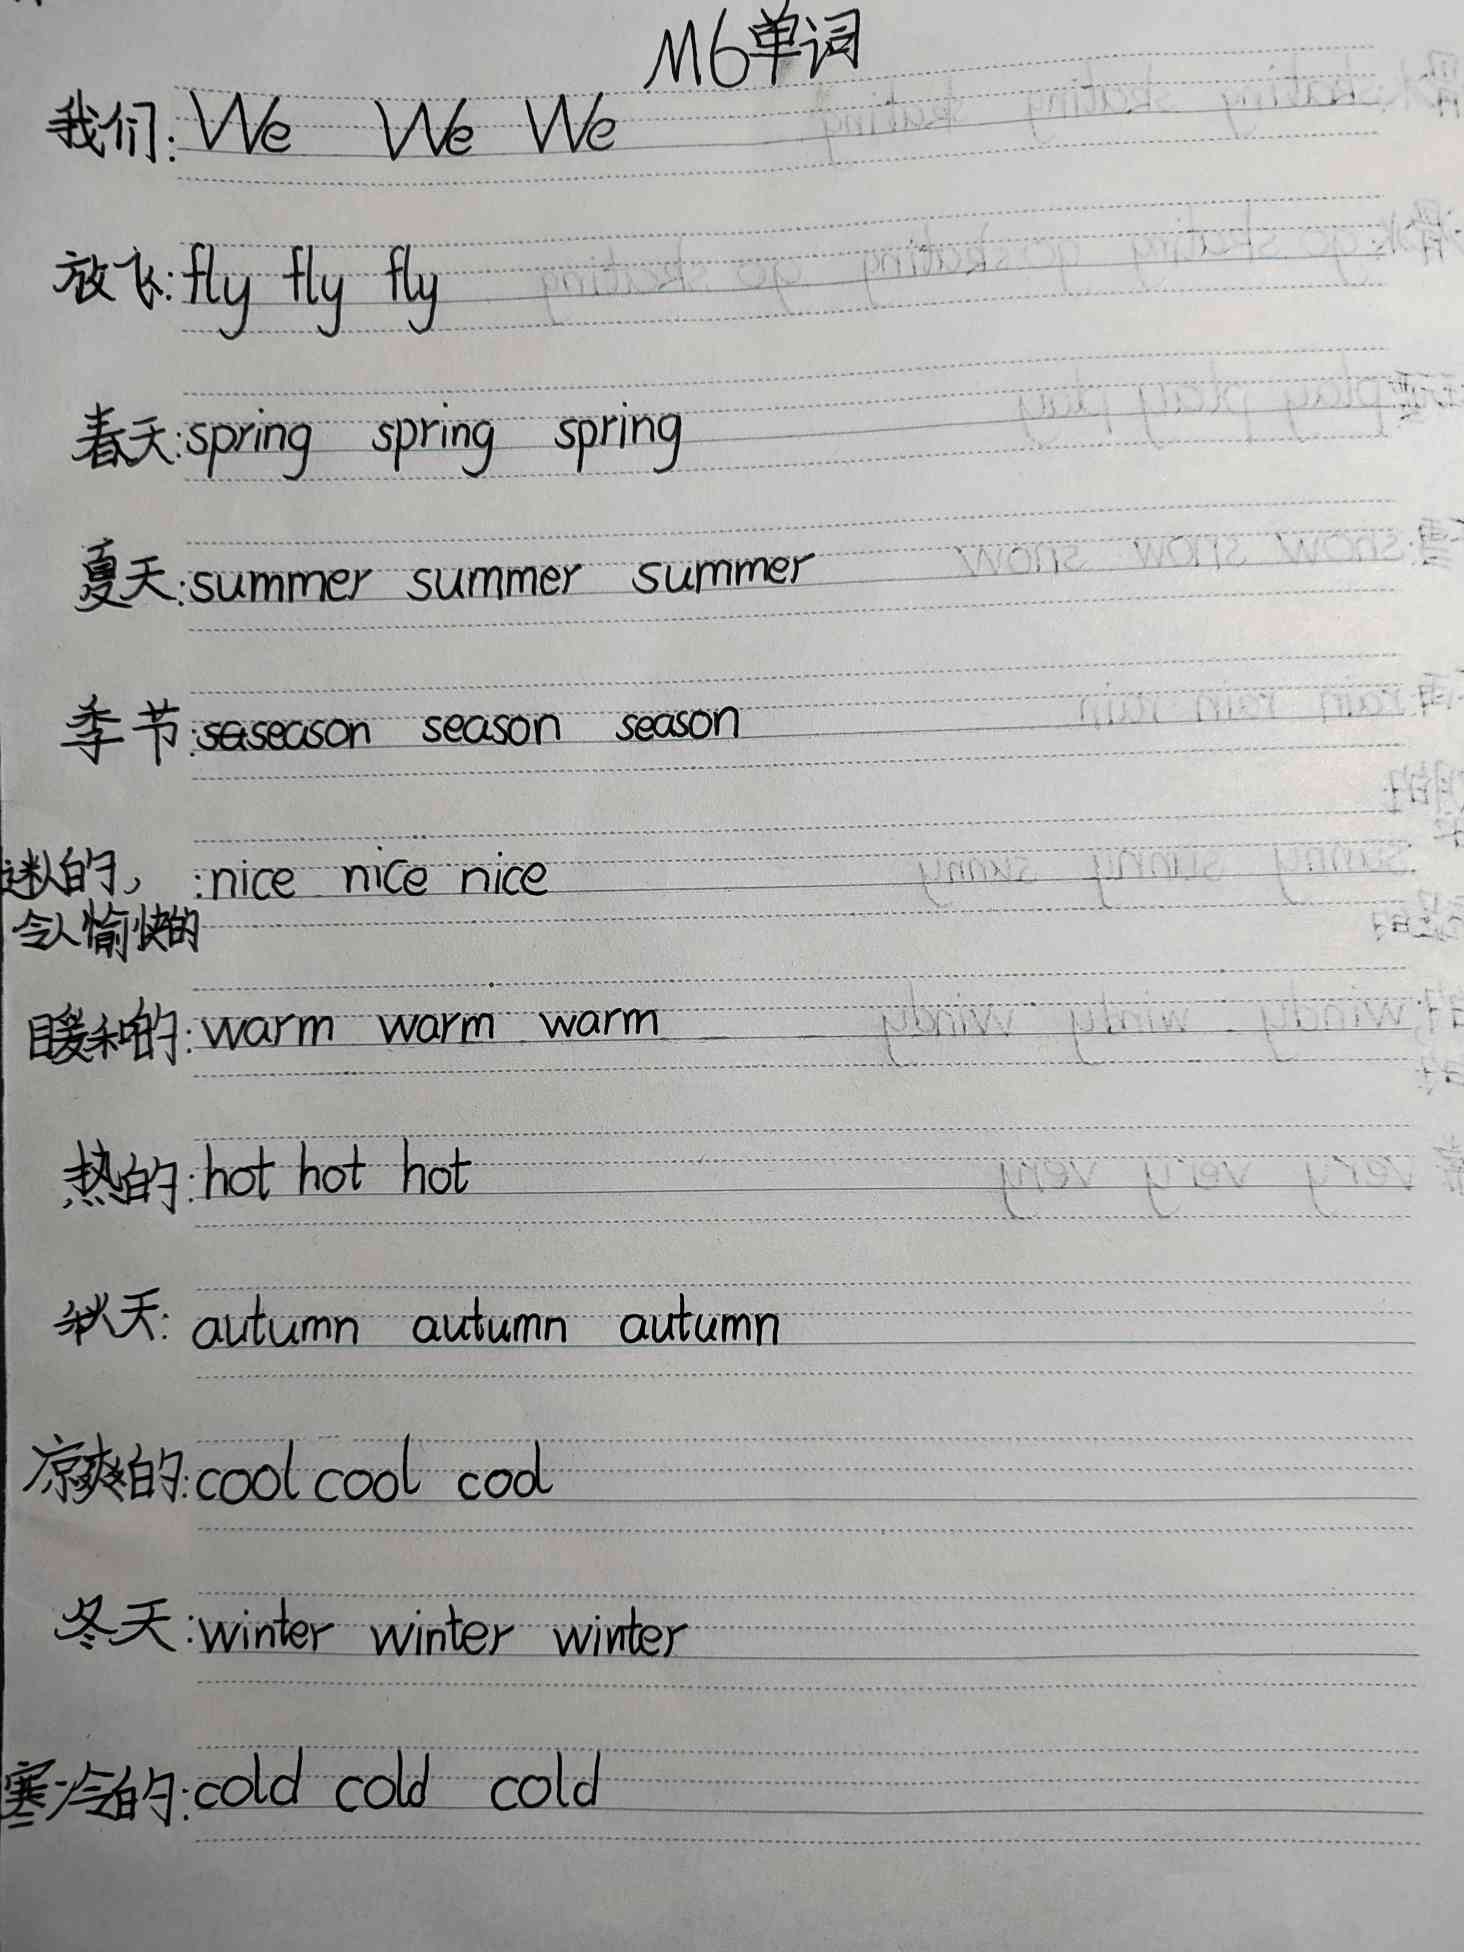 M6单词
我们: We We We
放飞: fly fly fly
春天: spring spring spring
夏天: summer summer summer
季节: season season season
迷人的, : nice nice nice
令人愉快的
暖和的: warm warm warm
热的: hot hot hot
秋天: autumn autumn autumn
凉爽的: cool cool cool
冬天: winter winter winter
寒冷的: cold cold cold